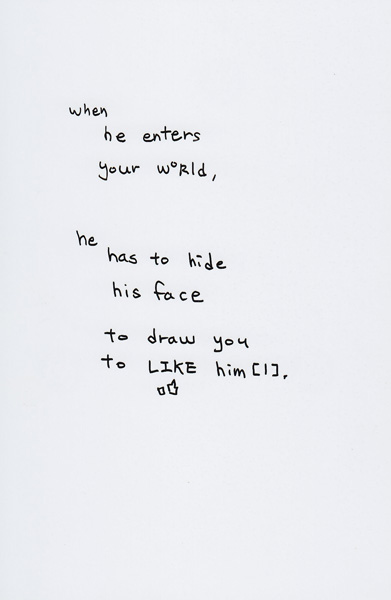 when
he enters
your woRld,
he
has to hide
his face
to draw you
to LIKE him[1].